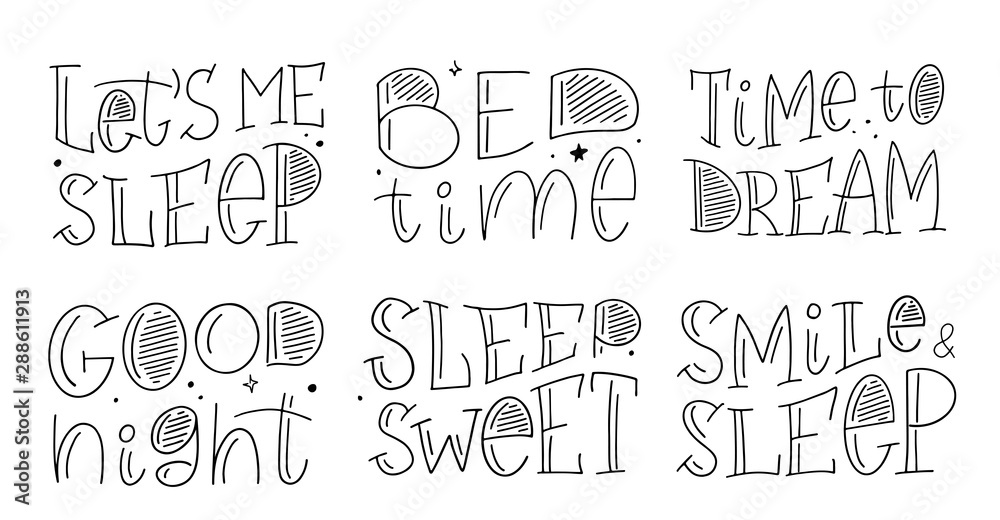 LET'S ME
SLEEP
BED
time
TIME to
DREAM
GOOD
night
SLEEP
SWEET
SMILE &
SLEEP
Adobe Stock | #288611913